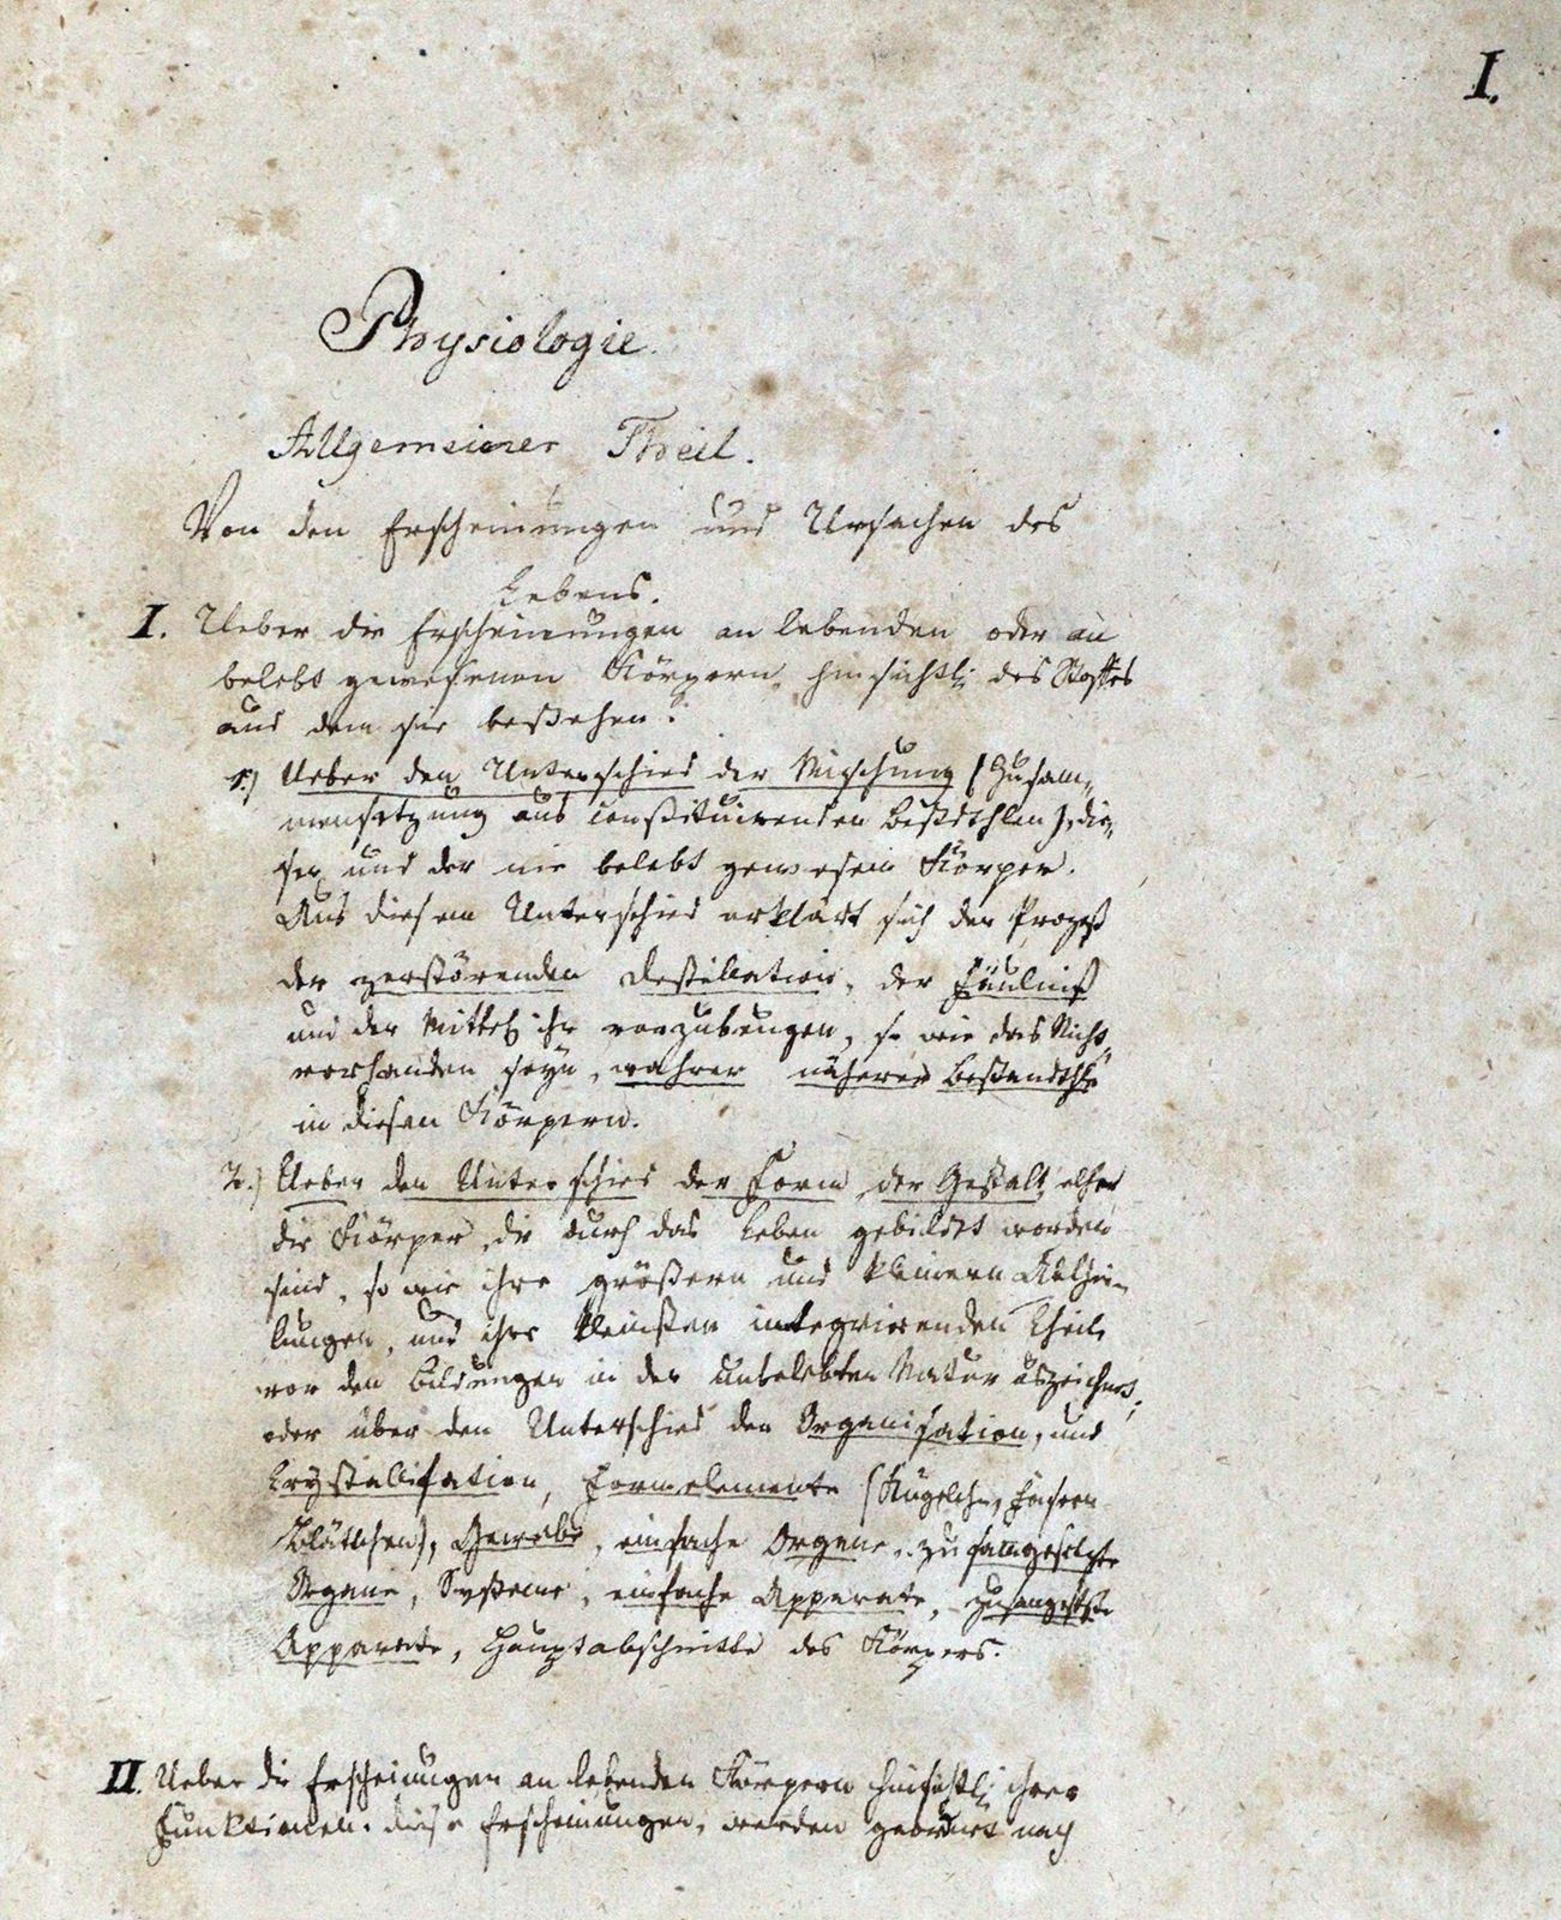 I.
Physiologie.
Allgemeiner Theil.
Von den Erscheinungen und Ursachen des
Lebens.
I. Ueber die Erscheinungen an lebenden oder an
belebt gewesenen Körpern, hinsichtl. des Stoffes
aus dem sie bestehen.
1.) Ueber den Unterschied der Mischung (Zusam„
mensetzung aus constituirenden Bestdthlen), die„
ser und der nie belebt gewesen Körper.
Aus diesem Unterschied erklärt sich der Prozeß
der zerstörenden Destillation, der Fäulniß
und der Mittel ihr vorzubeugen, so wie das Nicht
vorhanden seyn, wahrer näherer Bestandthle
in diesen Körpern.
2.) Ueber den Unterschied der Form, der Gestalt, welcher
die Körper, die durch das Leben gebildet worden
sind, so wie ihre größern und kleinern Abthei-
lungen, und ihre kleinsten integrirenden Theile
vor den Bildungen in der unbelebten Natur auszeichnet,
oder über den Unterschied der Organisation, und
Crystallisation, Formelemente (Kügelchn, Fasern
Blättchen), Gewebe, einfache Organe, zusamgesetzte
Organe, Systeme, einfache Apparate, zusamgestzte
Apparate, Hauptabschnitte des Körpers.
II. Ueber die Erscheinungen an lebenden Körpern hinsichtl. ihrer
Funktionen. diese Erscheinungen, werden geordnet nach